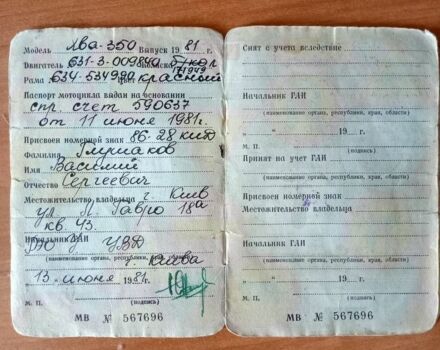 Модель Ява-350 Выпуск 1981 г.
Двигатель 631-3-009840 Коляска б/кол
Рама 634-534990 цвет красный
Паспорт мотоцикла выдан на основании
спр. счет 590637
от 11 июня 1981г.
Присвоен номерной знак 86-28 КИД
Фамилия
Имя Василий
Отчество Сергеевич
Местожительство владельца г. Киев
ул. П. Гавро 18а
кв. 43.
Начальник ГАИ
УВД
(наименование органа, республики, края, области)
г. Киева
13 июня 1981 г.
М. П. (подпись)
МВ № 567696
Снят с учета вследствие
Начальник ГАИ
(наименование органа, республики, края, области)
19 г.
М. П. (подпись)
Принят на учет ГАИ
(наименование органа, республики, края, области)
Присвоен номерной знак
Местожительство владельца
Начальник ГАИ
(наименование органа, республики, края, области)
19 г.
М. П. (подпись)
МВ № 567696